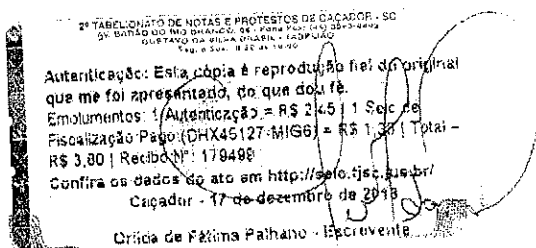 2º TABELIONATO DE NOTAS E PROTESTOS DE CAÇADOR - SC
AV. BARÃO DO RIO BRANCO,
GUSTAVO DA SILVA BRASIL - TABELIÃO
Autenticação: Esta cópia é reprodução fiel do original
que me foi apresentado, do que dou fé.
Emolumentos: 1 Autenticação = R$ 2,45 | 1 Selo de
Fiscalização Pago (DHX45127-MIG6) = R$ 1,35 | Total -
R$ 3,80 | Recibo Nº: 179499
Confira os dados do ato em http://selo.tjsc.jus.br/
Caçador - 17 de dezembro de 2013
de Fátima Palhano - Escrevente